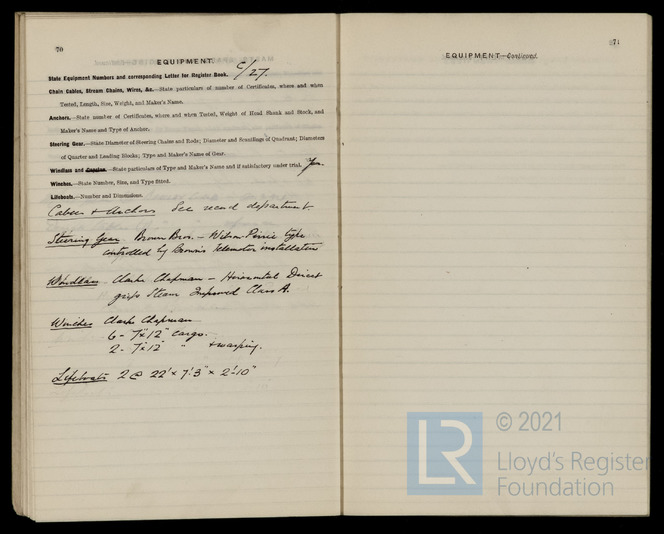 70
EQUIPMENT.
State Equipment Numbers and corresponding Letter for Register Book. C/27.
Chain Cables, Stream Chains, Wires, &c.—State particulars of number of Certificates, where and when
Tested, Length, Size, Weight, and Maker's Name.
Anchors.—State number of Certificates, where and when Tested, Weight of Head Shank and Stock, and
Maker's Name and Type of Anchor.
Steering Gear.—State Diameter of Steering Chains and Rods; Diameter and Scantlings of Quadrant; Diameters
of Quarter and Leading Blocks; Type and Maker's Name of Gear.
Windlass and Capstan.—State particulars of Type and Maker's Name and if satisfactory under trial. Yes.
Winches.—State Number, Size, and Type fitted.
Lifeboats.—Number and Dimensions.
Cables & Anchors See record department
Steering Gear Brown Bros. – Wilson-Pirrie type
controlled by Brown's Telemotor installation
Windlass Clarke Chapman – Horizontal Direct
grips Steam Improved Class A.
Winches Clarke Chapman
6 – 7"x12" cargo.
2 – 7"x12" " & warping.
Lifeboats 2 @ 22' x 7'.3" x 2'-10"
71
EQUIPMENT—Continued.
LR
© 2021
Lloyd's Register
Foundation